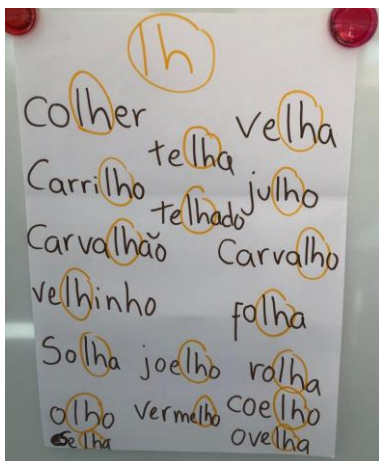 lh
Colher
velha
telha
Carrilho
julho
telhado
Carvalhão
Carvalho
velhinho
folha
Solha
joelho
rolha
olho
vermelho
coelho
selha
ovelha